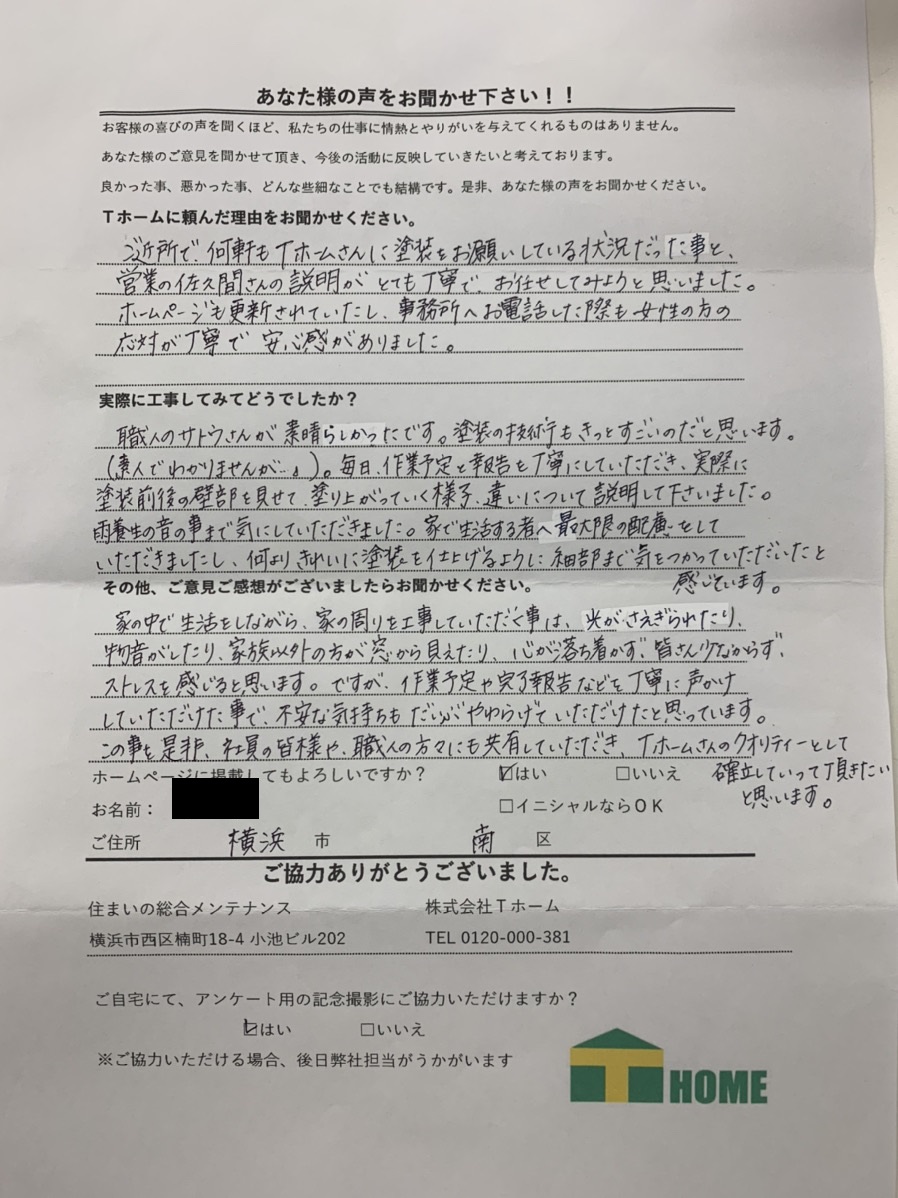 あなた様の声をお聞かせ下さい！！
お客様の喜びの声を聞くほど、私たちの仕事に情熱とやりがいを与えてくれるものはありません。
あなた様のご意見を聞かせて頂き、今後の活動に反映していきたいと考えております。
良かった事、悪かった事、どんな些細なことでも結構です。是非、あなた様の声をお聞かせください。
Tホームに頼んだ理由をお聞かせください。
ご近所で、何軒もTホームさんに塗装をお願いしている状況だった事と、
営業の佐久間さんの説明がとても丁寧で、お任せしてみようと思いました。
ホームページも更新されていたし、事務所へお電話した際も女性の方の
応対が丁寧で安心感がありました。
実際に工事してみてどうでしたか？
職人のサトウさんが素晴らしかったです。塗装の技術もきっとすごいのだと思います。
(素人でわかりませんが…。)。毎日、作業予定と報告を丁寧にしていただき、実際に
塗装前後の壁部を見せて、塗り上がっていく様子、違いについて説明して下さいました。
雨養生の音の事まで気にしていただきました。家で生活する者へ最大限の配慮をして
いただきましたし、何よりきれいに塗装を仕上げるように細部まで気をつかっていただいたと
感じています。
その他、ご意見ご感想がございましたらお聞かせください。
家の中で生活をしながら、家の周りを工事していただく事は、光がさえぎられたり、
物音がしたり、家族以外の方が窓から見えたり、心が落ち着かず、皆さん少なからず、
ストレスを感じると思います。ですが、作業予定や完了報告などを丁寧に声かけ
していただけた事で、不安な気持ちもだいぶやわらげていただけたと思っています。
この事を是非、社員の皆様や、職人の方々にも共有していただき、Tホームさんのクオリティーとして
確立していって頂きたい
と思います。
ホームページに掲載してもよろしいですか？ ☑はい □いいえ
お名前： □イニシャルならOK
ご住所 横浜 市 南 区
ご協力ありがとうございました。
住まいの総合メンテナンス 株式会社Tホーム
横浜市西区楠町18-4 小池ビル202 TEL 0120-000-381
ご自宅にて、アンケート用の記念撮影にご協力いただけますか？
☑はい □いいえ
※ご協力いただける場合、後日弊社担当がうかがいます
T HOME